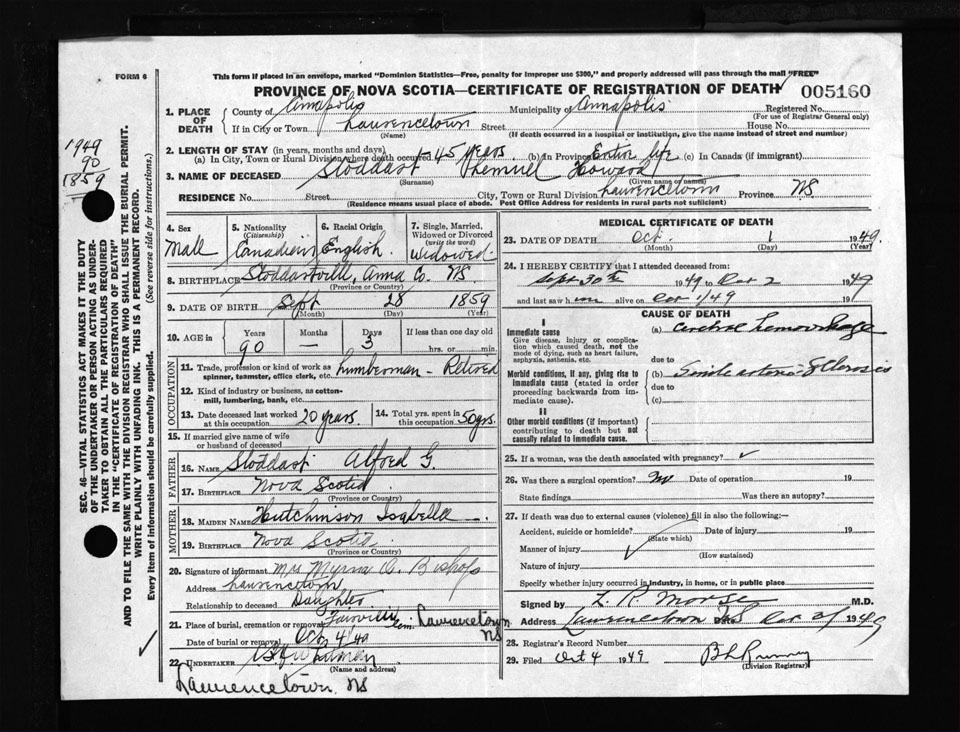 FORM 6
This form if placed in an envelope, marked "Dominion Statistics—Free, penalty for improper use $300," and properly addressed will pass through the mail "FREE"
PROVINCE OF NOVA SCOTIA—CERTIFICATE OF REGISTRATION OF DEATH 005160
1. PLACE OF DEATH County of Annapolis Municipality of Annapolis Registered No.
(For use of Registrar General only)
If in City or Town Lawrencetown Street House No.
(Name) (If death occurred in a hospital or institution, give the name instead of street and number)
2. LENGTH OF STAY (in years, months and days)
(a) In City, Town or Rural Division where death occurred 45 years (b) In Province Entire life (c) In Canada (if immigrant)
3. NAME OF DECEASED Stoddart Lemuel Howard
(Surname) (Given name or names)
RESIDENCE No. Street City, Town or Rural Division Lawrencetown Province NS
(Residence means usual place of abode. Post Office Address for residents in rural parts not sufficient)
1949
90
1859
SEC. 46—VITAL STATISTICS ACT MAKES IT THE DUTY
OF THE UNDERTAKER OR PERSON ACTING AS UNDER-
TAKER TO OBTAIN ALL THE PARTICULARS REQUIRED
IN THE "CERTIFICATE OF REGISTRATION OF DEATH"
AND TO FILE THE SAME WITH THE DIVISION REGISTRAR WHO SHALL ISSUE THE BURIAL PERMIT.
WRITE PLAINLY WITH UNFADING INK. THIS IS A PERMANENT RECORD.
Every item of information should be carefully supplied. (See reverse side for instructions.)
4. Sex
Male
5. Nationality
(Citizenship)
Canadian
6. Racial Origin
English
7. Single, Married,
Widowed or Divorced
(write the word)
Widowed
8. BIRTHPLACE Stoddartville, Anna Co. NS
(Province or Country)
9. DATE OF BIRTH Sept 28 1859
(Month) (Day) (Year)
10. AGE in Years Months Days If less than one day old
90 — 3 hrs. or min.
OCCUPATION
11. Trade, profession or kind of work as Lumberman - Retired
spinner, teamster, office clerk, etc.
12. Kind of industry or business, as cotton-
mill, lumbering, bank, etc.
13. Date deceased last worked at this occupation 20 years
14. Total yrs. spent in this occupation 50 yrs.
15. If married give name of wife
or husband of deceased
FATHER
16. Name Stoddart Alfred G.
17. Birthplace Nova Scotia
(Province or Country)
MOTHER
18. Maiden Name Hutchinson Isabella
19. Birthplace Nova Scotia
(Province or Country)
20. Signature of informant Mrs Myrna O. Bishop
Address Lawrencetown
Relationship to deceased Daughter
21. Place of burial, cremation or removal Fairview Cem. Lawrencetown NS
Date of burial or removal Oct 4/49
22. UNDERTAKER
(Name and address)
Lawrencetown, NS
MEDICAL CERTIFICATE OF DEATH
23. DATE OF DEATH Oct. 1 1949.
(Month) (Day) (Year)
24. I HEREBY CERTIFY that I attended deceased from:
Sept 30th 1949 to Oct 2 1949
and last saw him alive on Oct 1/49 19
CAUSE OF DEATH
I
Immediate cause
Give disease, injury or complica-
tion which caused death, not the
mode of dying, such as heart failure,
asphyxia, asthenia, etc.
(a) Cerebral hemorrhage
due to
Morbid conditions, if any, giving rise to
immediate cause (stated in order
proceeding backwards from im-
mediate cause).
(b) Senile arterio Sclerosis
due to
(c)
II
Other morbid conditions (if important)
contributing to death but not
causally related to immediate cause.
25. If a woman, was the death associated with pregnancy?
26. Was there a surgical operation? no Date of operation 19
State findings Was there an autopsy?
27. If death was due to external causes (violence) fill in also the following:—
Accident, suicide or homicide? Date of injury 19
(State which)
Manner of injury
(How sustained)
Nature of injury
Specify whether injury occurred in industry, in home, or in public place
Signed by L. R. Morse M.D.
Address Lawrencetown NS Date Oct 2/ 1949
28. Registrar's Record Number
29. Filed Oct 4 1949
(Division Registrar)